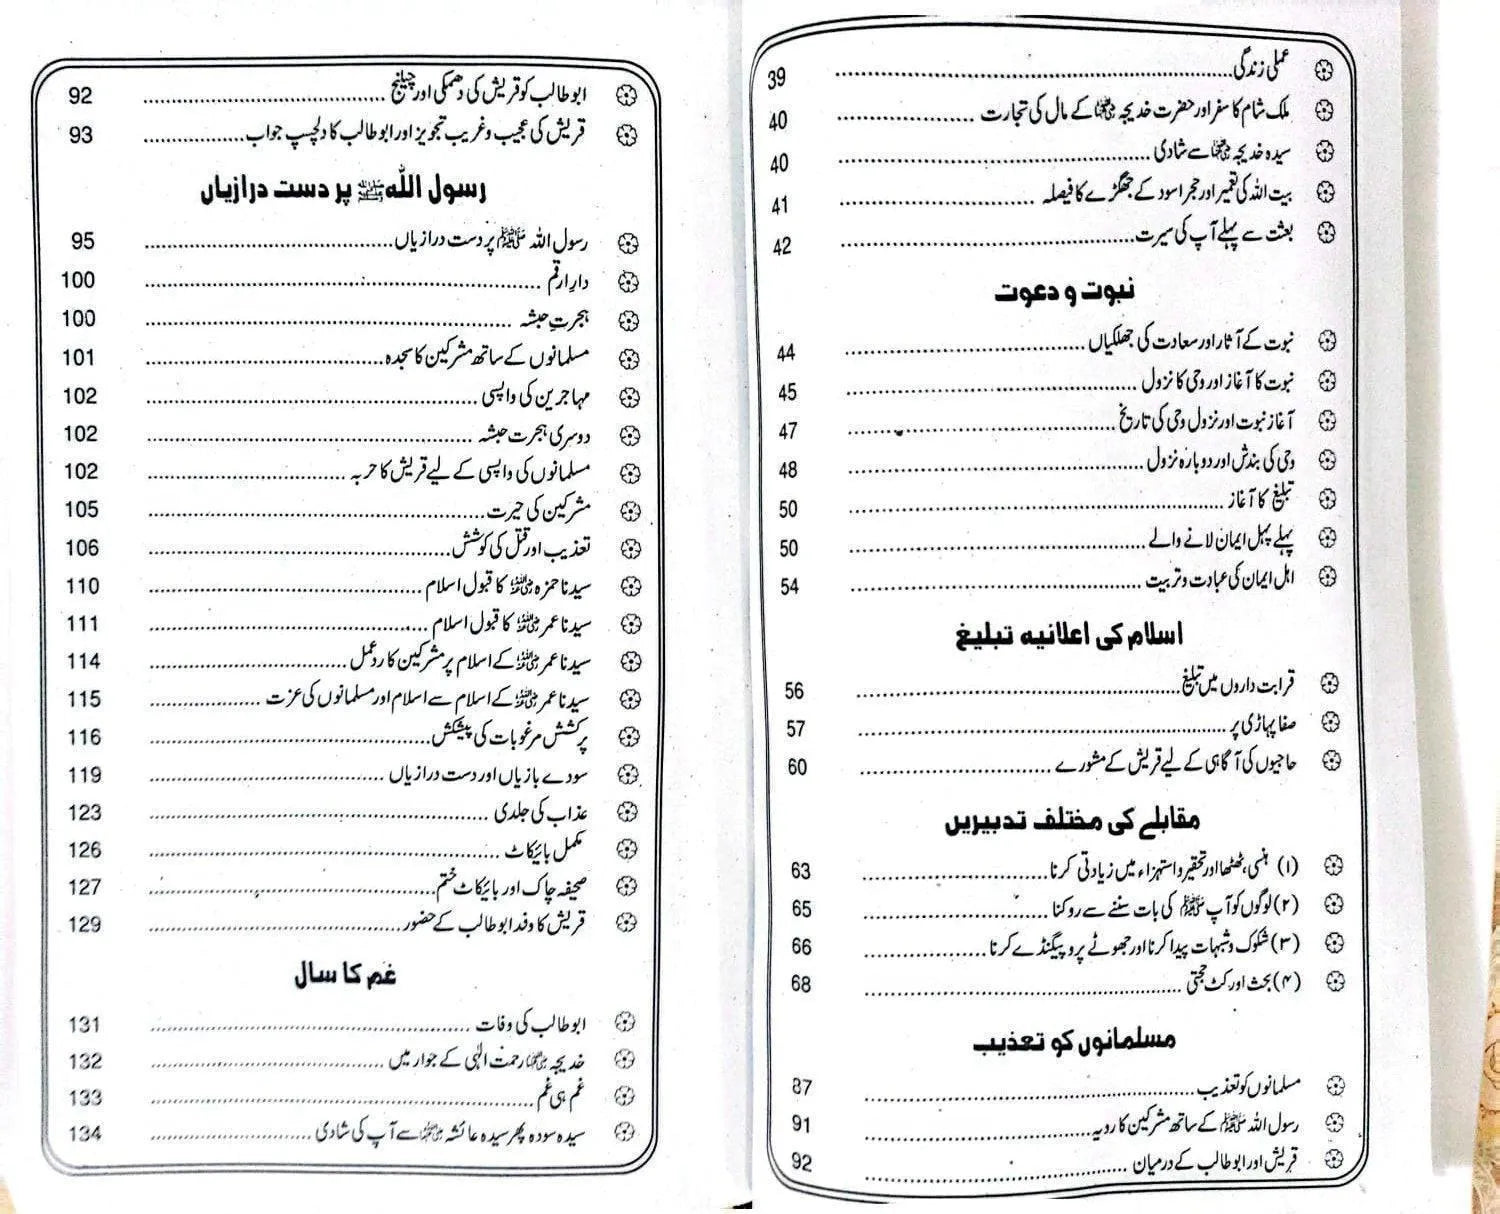 عملی زندگی ........ 39
ملک شام کا سفر اور حضرت خدیجہ رضی اللہ عنہا کے مال کی تجارت ........ 40
سیدہ خدیجہ رضی اللہ عنہا سے شادی ........ 40
بیت اللہ کی تعمیر اور حجر اسود کے جھگڑے کا فیصلہ ........ 41
بعثت سے پہلے آپ کی سیرت ........ 42
نبوت و دعوت
نبوت کے آثار اور سعادت کی جھلکیاں ........ 44
نبوت کا آغاز اور وحی کا نزول ........ 45
آغاز نبوت اور نزول وحی کی تاریخ ........ 47
وحی کی بندش اور دوبارہ نزول ........ 48
تبلیغ کا آغاز ........ 50
پہلے پہل ایمان لانے والے ........ 50
اہل ایمان کی عبادت و تربیت ........ 54
اسلام کی اعلانیہ تبلیغ
قرابت داروں میں تبلیغ ........ 56
صفا پہاڑی پر ........ 57
حاجیوں کی آگاہی کے لیے قریش کے مشورے ........ 60
مقابلے کی مختلف تدبیریں
(۱) ہنسی، ٹھٹھا اور تحقیر و استہزاء میں زیادتی کرنا ........ 63
(۲) لوگوں کو آپ ﷺ کی بات سننے سے روکنا ........ 65
(۳) شکوک و شبہات پیدا کرنا اور جھوٹے پروپیگنڈے کرنا ........ 66
(۴) بحث اور کٹ حجتی ........ 68
مسلمانوں کو تعذیب
مسلمانوں کو تعذیب ........ 87
رسول اللہ ﷺ کے ساتھ مشرکین کا رویہ ........ 91
قریش اور ابو طالب کے درمیان ........ 92
ابو طالب کو قریش کی دھمکی اور چیلنج ........ 92
قریش کی عجیب و غریب تجویز اور ابو طالب کا دلچسپ جواب ........ 93
رسول اللہ ﷺ پر دست درازیاں
رسول اللہ ﷺ پر دست درازیاں ........ 95
دارِ ارقم ........ 100
ہجرتِ حبشہ ........ 100
مسلمانوں کے ساتھ مشرکین کا سجدہ ........ 101
مہاجرین کی واپسی ........ 102
دوسری ہجرت حبشہ ........ 102
مسلمانوں کی واپسی کے لیے قریش کا حربہ ........ 102
مشرکین کی حیرت ........ 105
تعذیب اور قتل کی کوشش ........ 106
سیدنا حمزہ رضی اللہ عنہ کا قبول اسلام ........ 110
سیدنا عمر رضی اللہ عنہ کا قبول اسلام ........ 111
سیدنا عمر رضی اللہ عنہ کے اسلام پر مشرکین کا ردعمل ........ 114
سیدنا عمر رضی اللہ عنہ کے اسلام سے اسلام اور مسلمانوں کی عزت ........ 115
پرکشش مرغوبات کی پیشکش ........ 116
سودے بازیاں اور دست درازیاں ........ 119
عذاب کی جلدی ........ 123
مکمل بائیکاٹ ........ 126
صحیفہ چاک اور بائیکاٹ ختم ........ 127
قریش کا وفد ابو طالب کے حضور ........ 129
غم کا سال
ابو طالب کی وفات ........ 131
خدیجہ رضی اللہ عنہا رحمت الٰہی کے جوار میں ........ 132
غم ہی غم ........ 133
سیدہ سودہ پھر سیدہ عائشہ رضی اللہ عنہا سے آپ کی شادی ........ 134